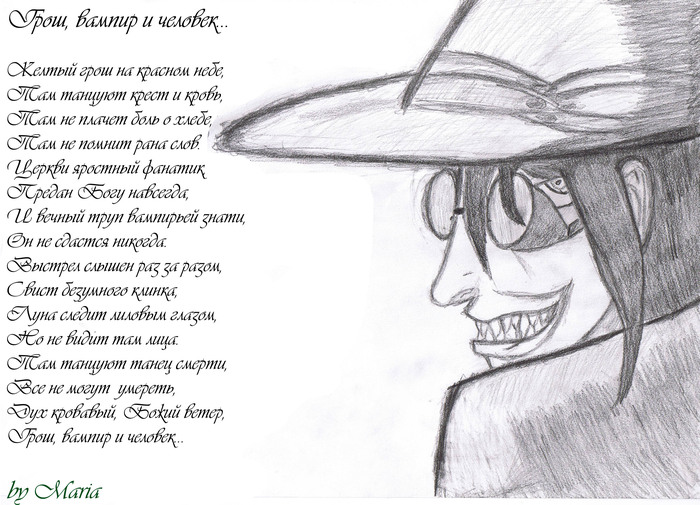 Грош, вампир и человек...
Желтый грош на красном небе,
Там танцуют крест и кровь,
Там не плачет боль о хлебе,
Там не помнит рана слов.
Церкви яростный фанатик
Предан Богу навсегда,
И вечный труп вампирьей знати,
Он не сдастся никогда.
Выстрел слышен раз за разом,
Свист безумного клинка,
Луна следит лиловым глазом,
Но не видит там лица.
Там танцуют танец смерти,
Все не могут умереть,
Дух кровавый, Божий ветер,
Грош, вампир и человек...
by Maria